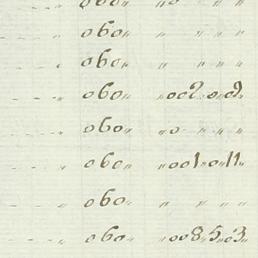 060„ „0 „ „ „
060„ „ „ „
060„ „ „ „
„ 060„ „002„0„2„
„ 060„ „0 „ „ „
„ 060„ „001„0„11„
060„ „ „ „
„ 060„ „008„5„3„